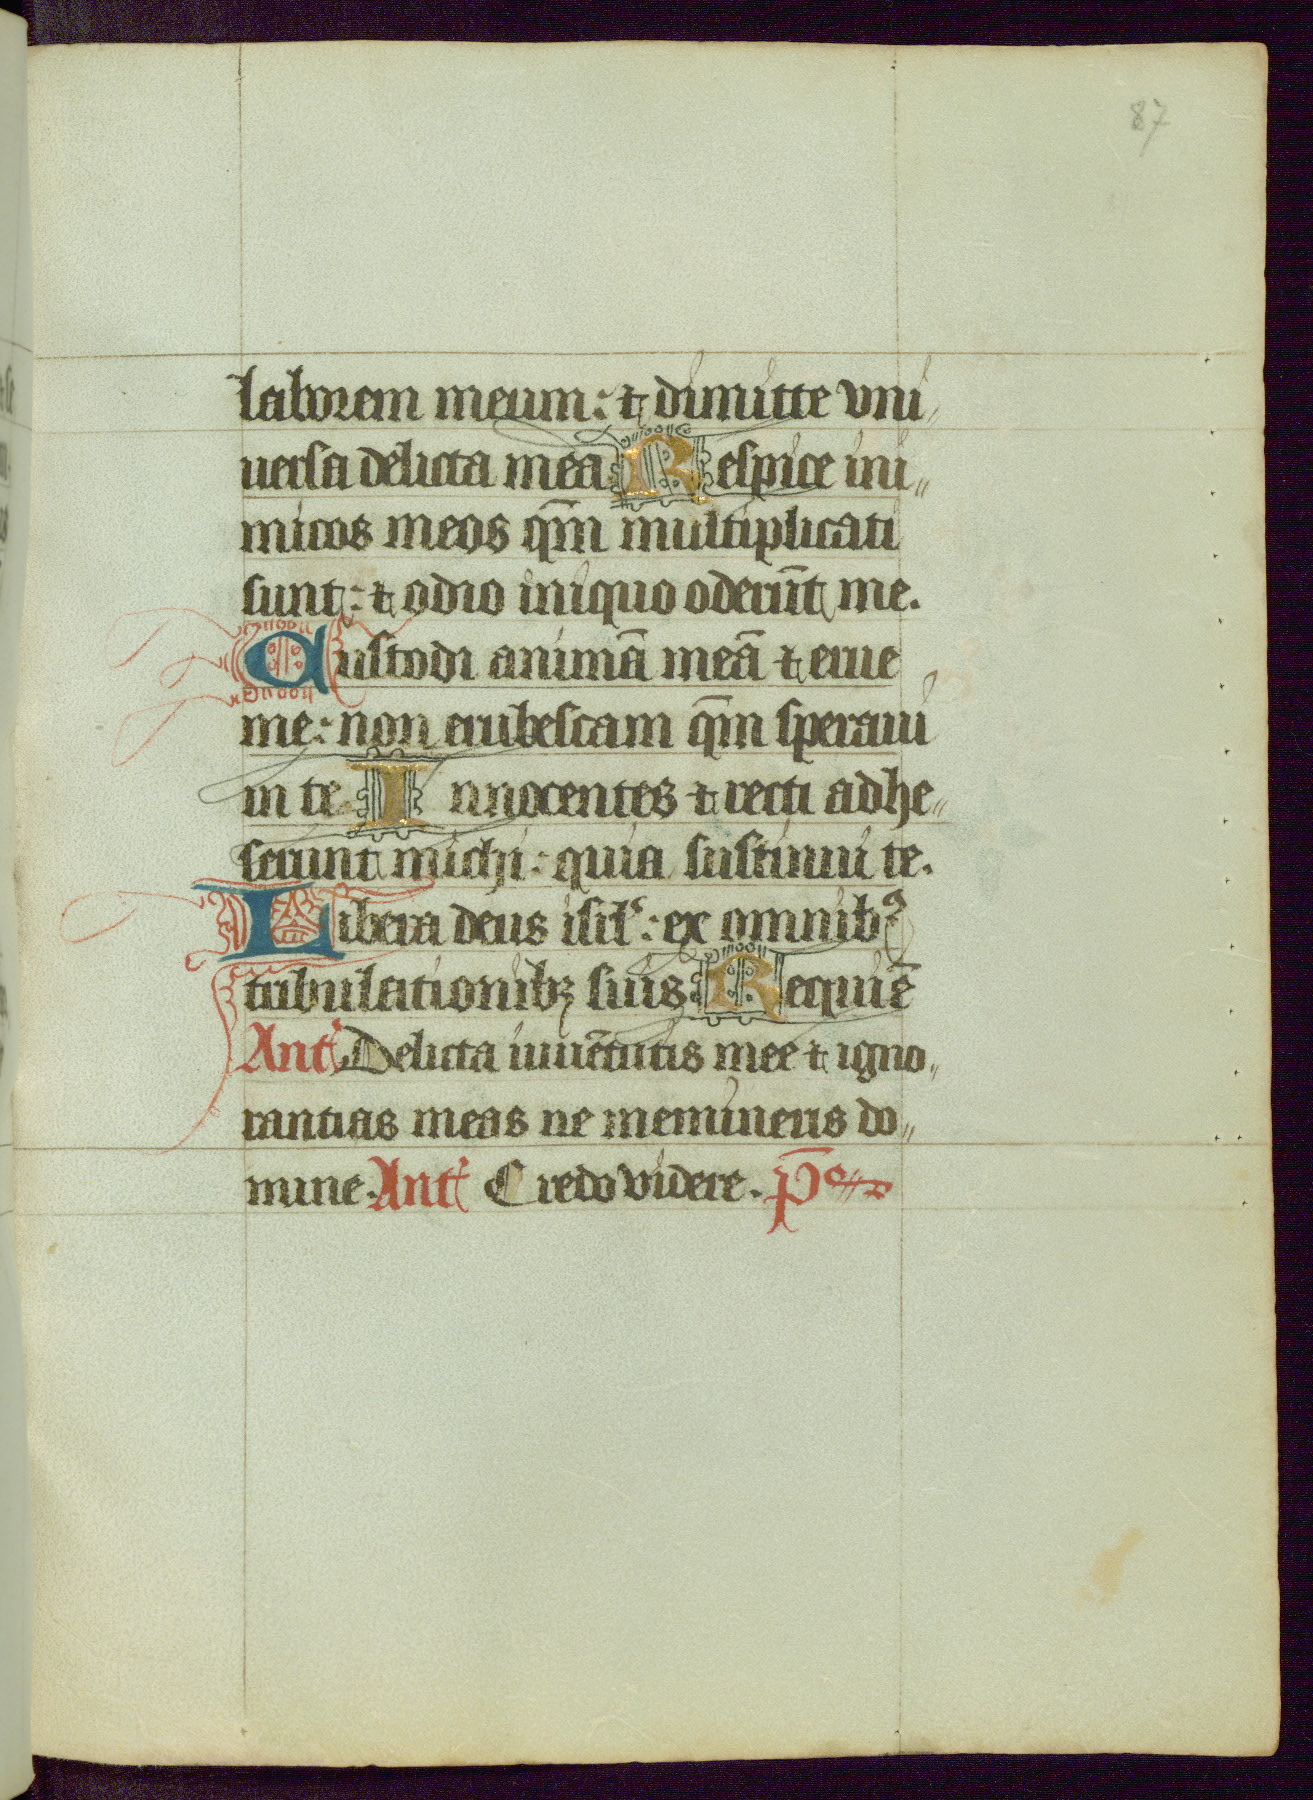 87
laborem meum: ⁊ dimitte vni„
uersa delicta mea Respice ini„
micos meos qm̄ multiplicati
sunt: ⁊ odio iniquo oderūt me.
Custodi animā meā ⁊ erue
me: non erubescam qm̄ speraui
in te Innocentes ⁊ recti adhe„
serunt michi: quia sustinui te.
Libera deus isrl': ex omnibꝰ
tribulationibꝫ suis. Requiē
Ant' Delicta iuuētutis mee ⁊ igno„
rantias meas ne memineris do„
mine. Ant' Credo videre. p̄s